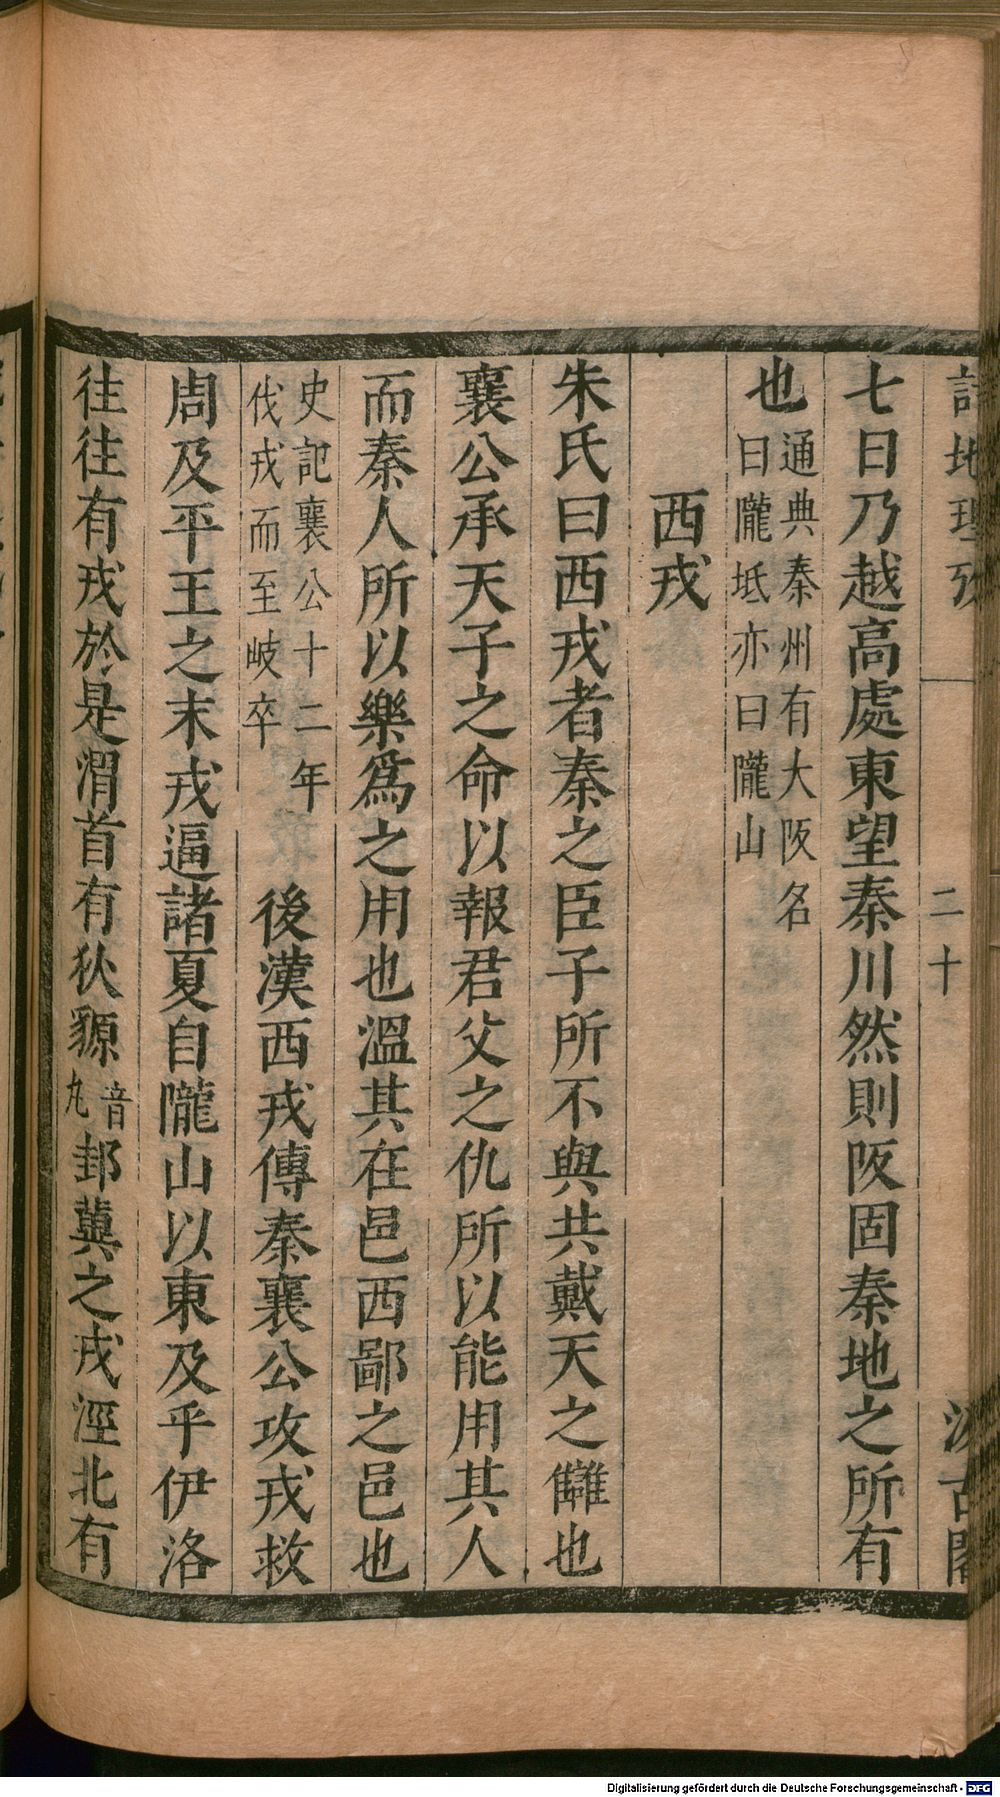 詩地理攷 二十 汲古閣
七曰乃越高處東望秦川然則阪固秦地之所有
也通典秦州有大阪名
曰隴坻亦曰隴山
西戎
朱氏曰西戎者秦之臣子所不與共戴天之讎也
襄公承天子之命以報君父之仇所以能用其人
而秦人所以樂爲之用也溫其在邑西鄙之邑也
史記襄公十二年
伐戎而至岐卒
後漢西戎傳秦襄公攻戎救
周及平王之末戎逼諸夏自隴山以東及乎伊洛
往往有戎於是渭首有狄䝠音
丸
邽冀之戎涇北有
Digitalisierung gefördert durch die Deutsche Forschungsgemeinschaft - DFG